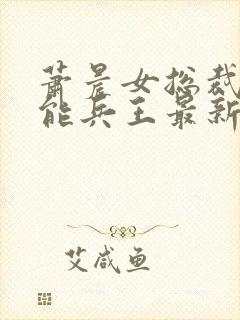 萧晨女总裁
能兵王最新
艾咸鱼